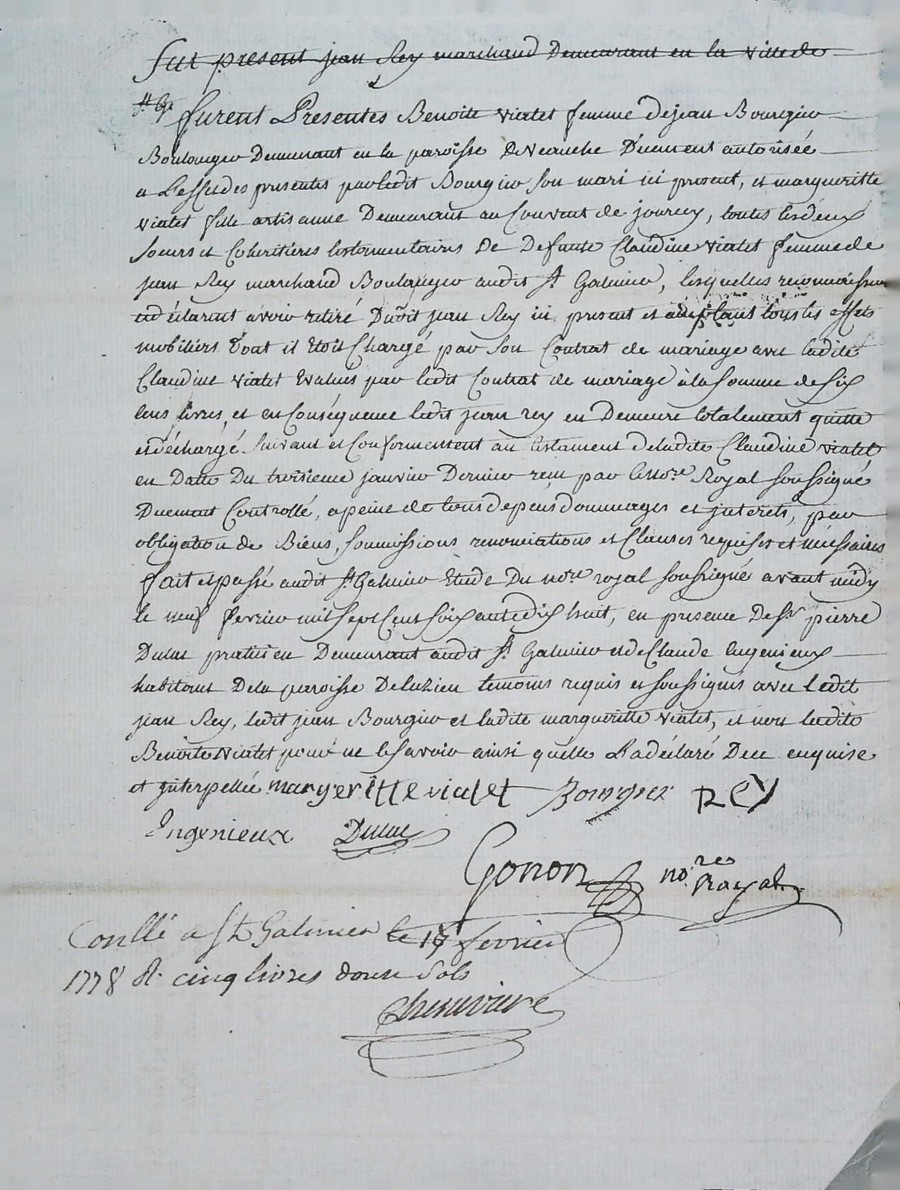 fut present jean Rey marchand Demeurant en la ville de
St G
furent Presentes Benoite vialet femme de jean Bourgier
Boulanger Demeurant en la paroisse De Neauche Duement autorisée
a L'effet des presentes par ledit Bourgier Son mari ici present, et margueritte
vialet fille artisanne Demeurant au Couvent de jourcey, toutes les deux
Soeurs et Coheritières testamentaires de Defunte Claudine vialet femme de
jean Rey marchand Boulanger audit St Galmier, lesquelles reconnoissent
et déclarent avoir retiré Dudit jean Rey ici present et acceptant tous les effets
mobiliers Dont il Etoit Chargé par Son Contrat de mariage avec ladite
Claudine vialet Evalués par ledit Contrat de mariage à la Somme de Six
Cens livres, et en Conséquence ledit jean rey en Demeure totalement quitte
et déchargé Suivant et Conformement au testament de ladite Claudine vialet
en Datte Du troisieme janvier Dernier reçu par le no.re Royal Soussigné
Duement Controllé, a peine de tous depens dommages et jnterets, par
obligation de Biens, Soumissions renonciations et Clauses requises et necessaires
fait et passé audit St Galmier Etude Du no.re royal Soussigné avant midy
le neuf fevrier mil Sept Cent Soixante dix huit, en presence De Sr pierre
Dulac praticien Demeurant audit St Galmier et de Claude Engenieux
habitant De la paroisse De luzieu temoins requis et Soussignés avec ledit
jean Rey, ledit jean Bourgier et ladite margueritte vialet, et non ladite
Benoite vialet pour ne le Savoir ainsi qu'elle L'a déclaré De ce enquise
et jnterpellée margeritte vialet Bourgier REY
Ingenieux Dulac
Gonon no.re Royal
Conllé a St Galmier le 19 fevrier
1778 R. cinq livres douze Sols
Cheneviere